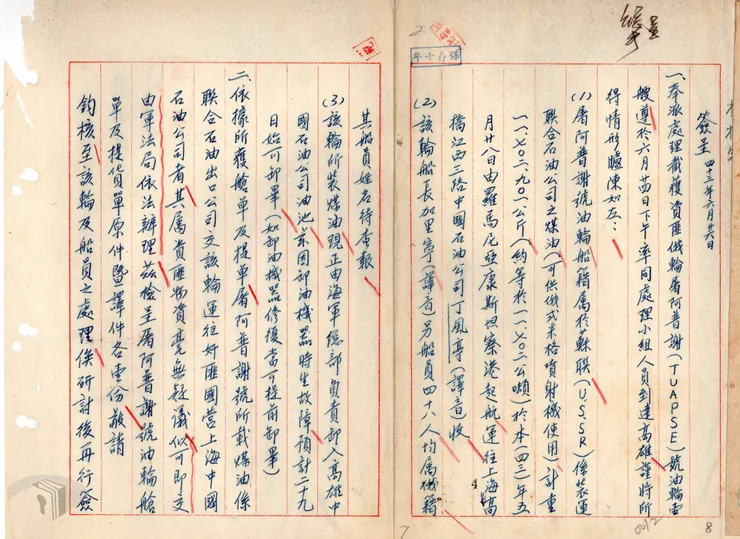 簽呈 四十三年六月廿六日
一、奉派處理截獲資匪俄輪屠阿普謝(TUAPSE)號油輪壹
艘遵於六月廿四日下午率同處理小組人員到達高雄謹將所
得情形臚陳如左：
(1)屠阿普謝號油輪船籍屬於蘇聯(U.S.S.R)係裝運
聯合石油公司之煤油(可供俄式米格噴射機使用)計重
一一、七〇二、九〇一公斤(約等於一一、七〇二公噸)於本(四三)年五
月廿八日由羅馬尼亞康斯坦察港起航運往上海高
橋江西三路中國石油公司丁風亭(譯音)收
(2)該輪船長加里寧(譯音)另船員四十八人均屬俄籍
其船員姓名待查報
(3)該輪所裝煤油現正由海軍總部負責卸入高雄中
國石油公司油池並因卸油機器時生故障預計二十九
日始可卸畢(如卸油機器修復當可提前卸畢)
二、依據所獲艙單及提單屠阿普謝號所載煤油係
聯合石油出口公司交該輪運往奸匪國營上海中國
石油公司者其屬資匪物資毫無疑議似可即交
由軍法局依法辦理茲檢呈屠阿普謝號油輪艙
單及提貨單原件暨譯件各壹份敬請
鈞核至該輪及船員之處理俟研討後再行簽
2
4
7
0012
8